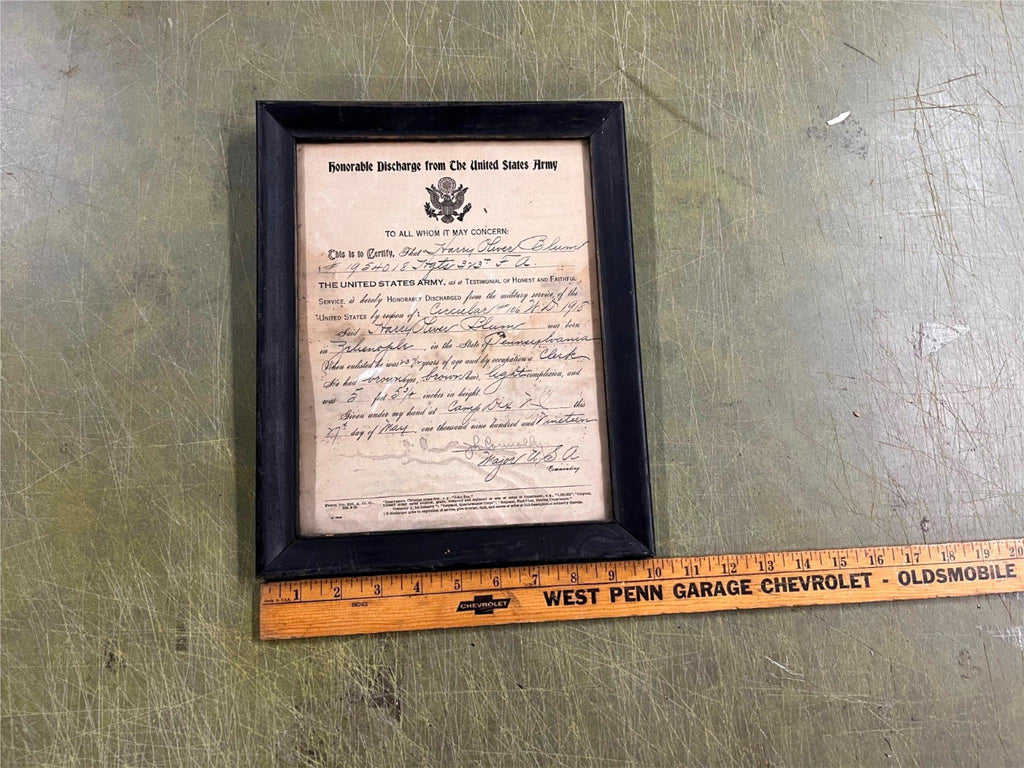 Honorable Discharge from The United States Army
TO ALL WHOM IT MAY CONCERN:
This is to Certify, That Harry Oliver Blum
# 1954018 Hqts 323rd F A.
THE UNITED STATES ARMY, as a TESTIMONIAL OF HONEST AND FAITHFUL
SERVICE, is hereby HONORABLY DISCHARGED from the military service of the
UNITED STATES by reason of Circular # 106 W.D. 1918
Said Harry Oliver Blum was born
in Zelienople, in the State of Pennsylvania
When enlisted he was 23 years of age and by occupation a Clerk
He had brown eyes, brown hair, light complexion, and
was 5 feet 5 3/4 inches in height.
Given under my hand at Camp Dix N J this
27th day of May, one thousand nine hundred and Nineteen
Connolly
Major U S A
Commanding
FORM No. 525, A. G. O.
MADE IN U.S.A.
1 2 3 4 5 6 7 8 9 10 11 12 13 14 15 16 17 18 19 20
INCHES
CHEVROLET
WEST PENN GARAGE CHEVROLET - OLDSMOBILE